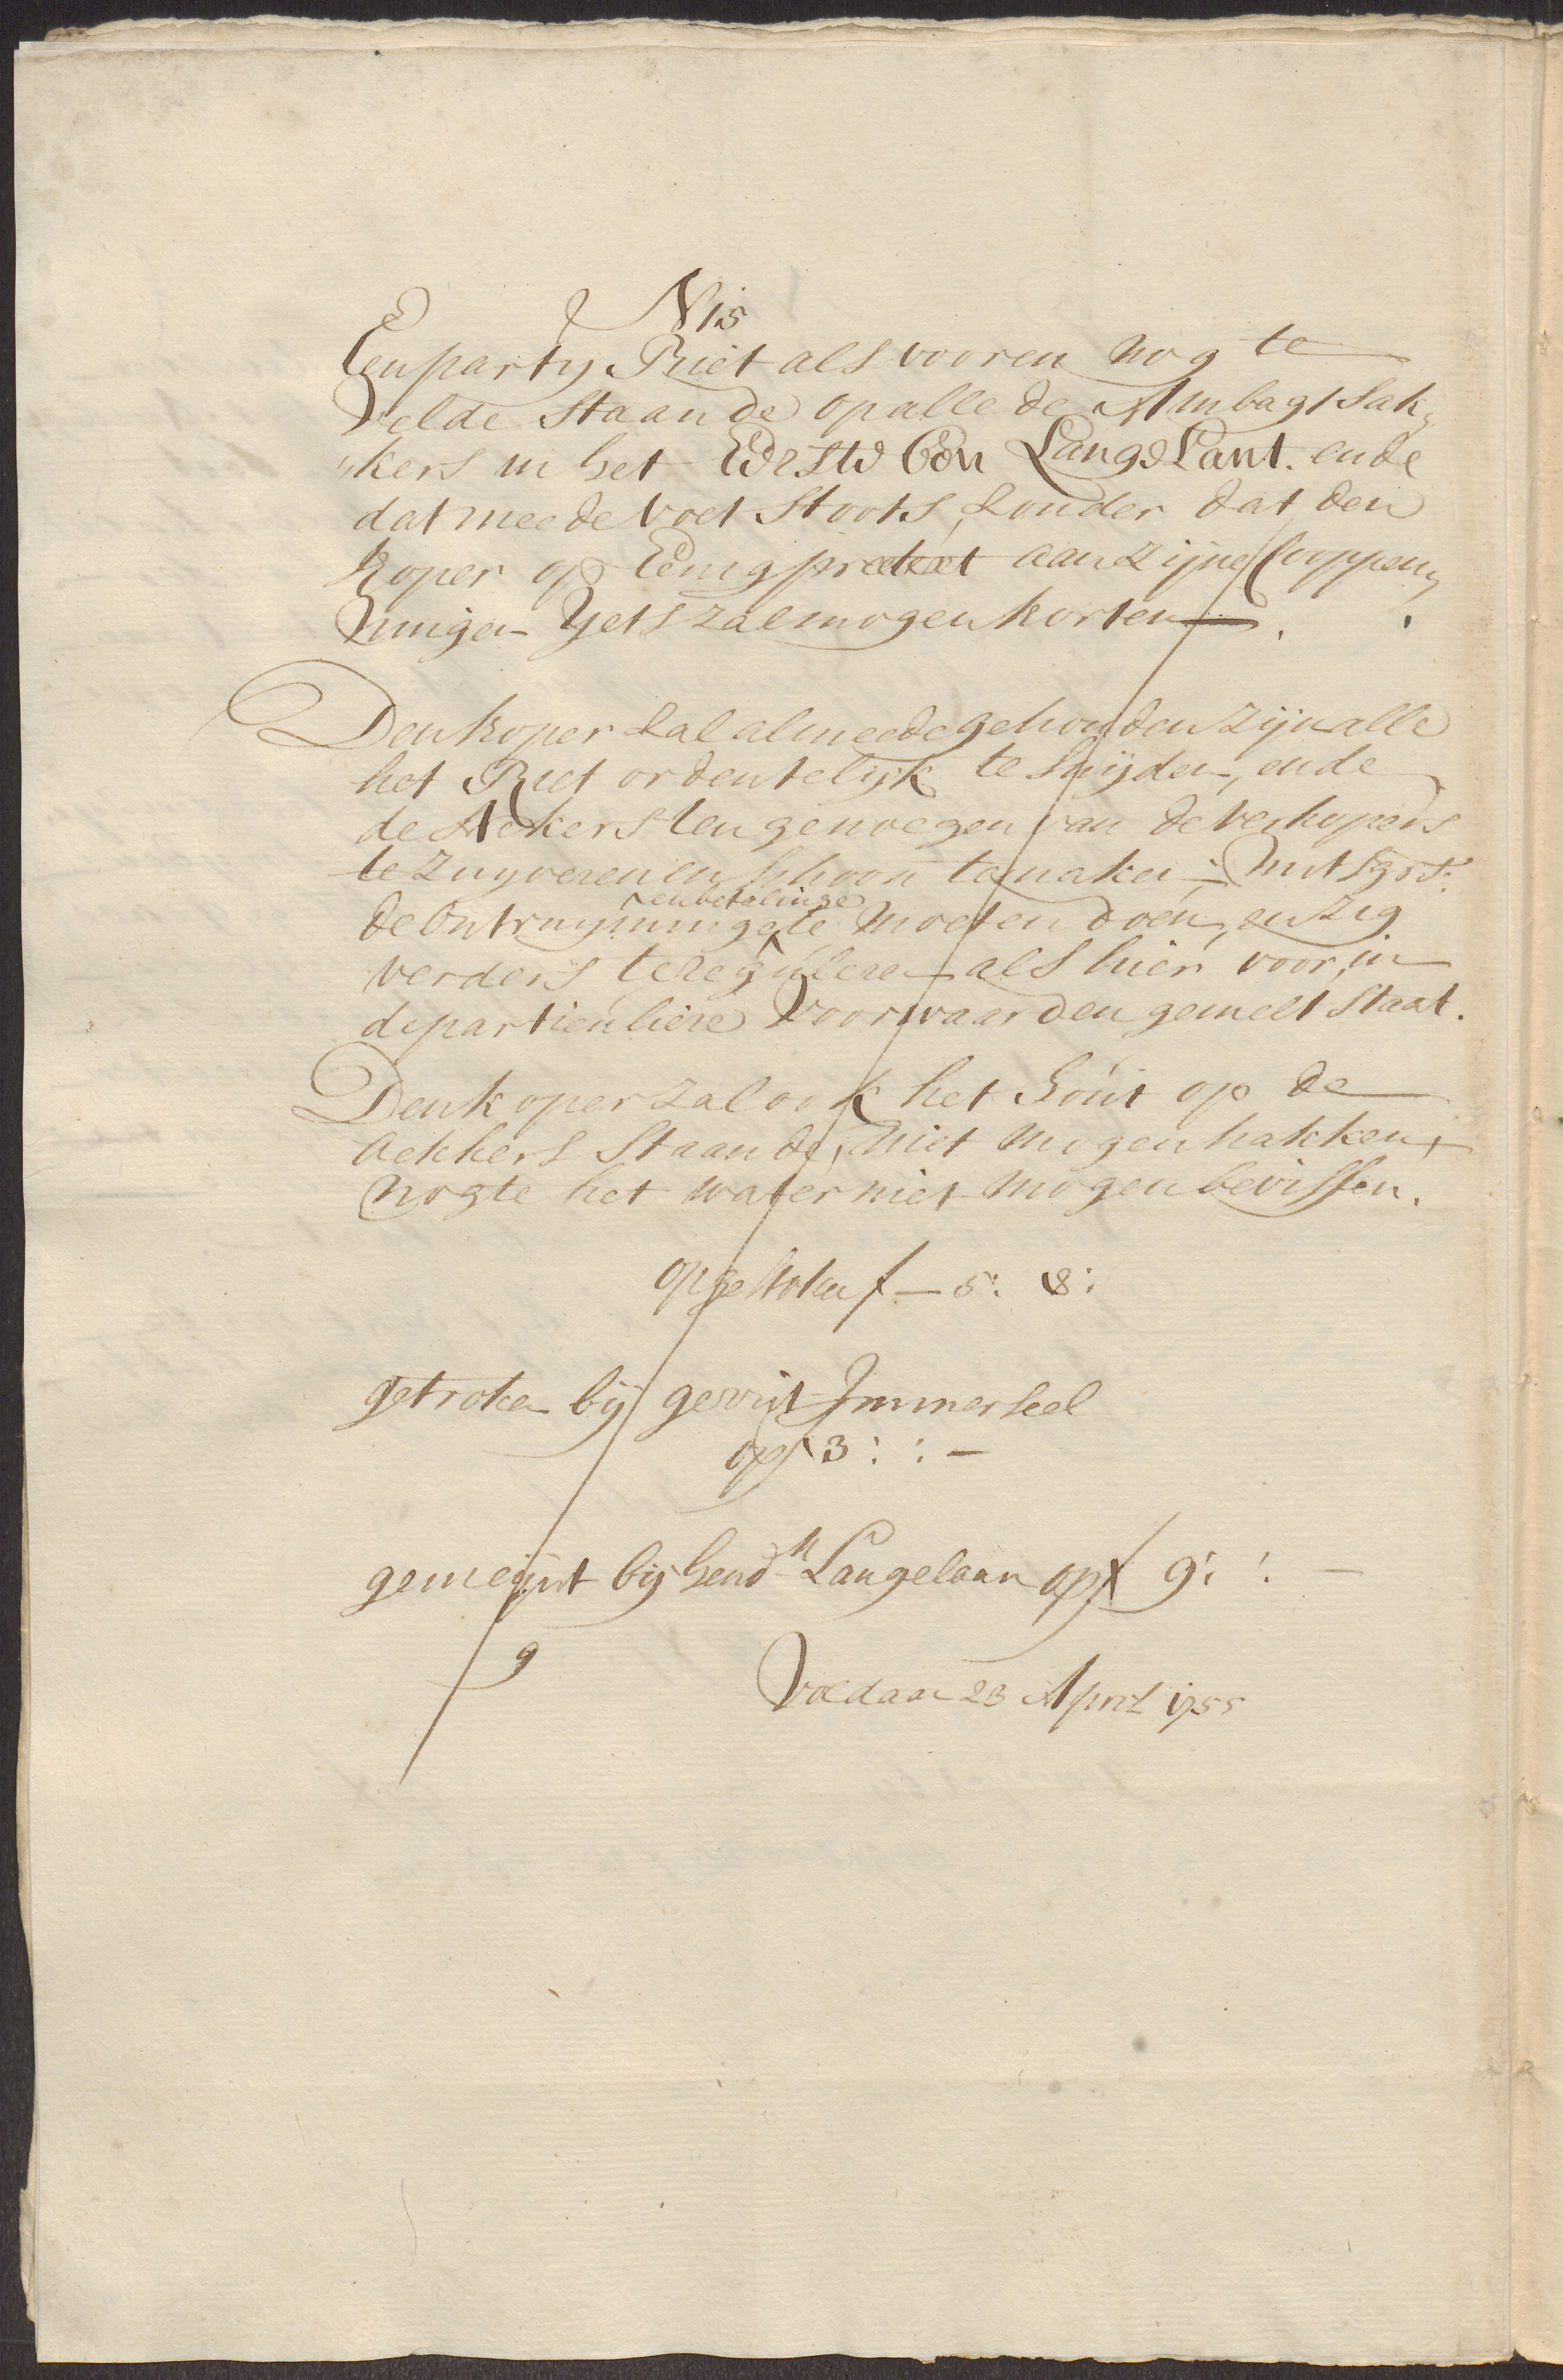 N 15
Een party Riet als vooren nog te
velde staande op alle de Ambagtsak„
„kers in het Eerste Een Lange Lant. ende
dat meede voet stoots, sonder dat den
koper op Eenig pretext aan zijne
Yets zal mogen korten.
Den koper sal almeede gehouden zijn alle
het Riet ordentelijk te snijden, ende
de Ackers ten genoegen van de verkopers
te zuyveren en schoon te maken; mitsgrs.
en betalinge
de ontruyminge te moeten doen, en zig
verders te reguleren als hier voor, in
de particuliere voorwaarden gemelt staat.
Den koper zal ook het hout op de
Ackkers staande, niet mogen hakken,
nogte het water niet mogen bevissen.
opgestoken f — 5: 8:
getroken bij gerrit Immerseel
op f 3: : —
gemeijnt bij Hendk Langelaan op f 9: : —
9
Voldaan 23 April 1755